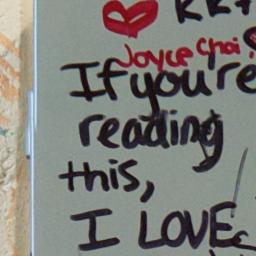 Joyce Choi
If you're
reading
this,
I LOVE